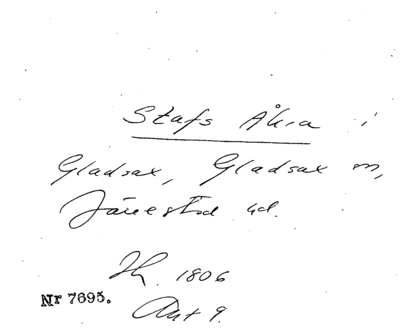 Stafs Åkra i
Gladsax, Gladsax m,
Järrestad hd.
Th. 1806
Akt 9.
Nr 7695.